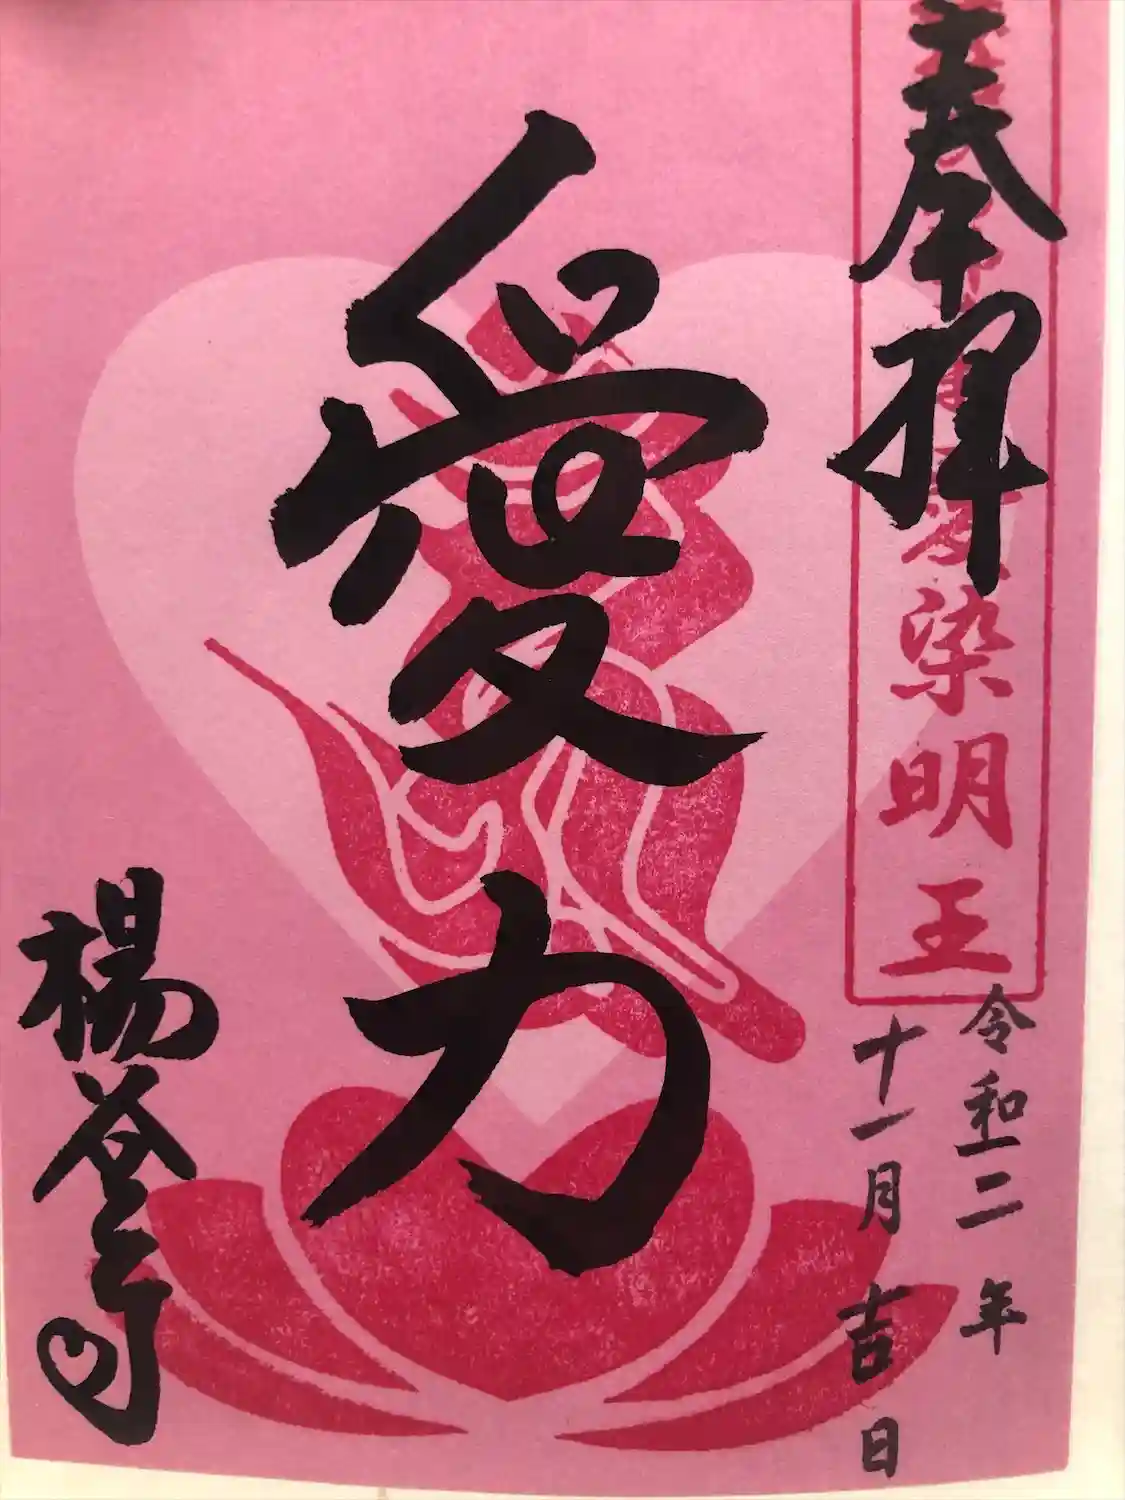 奉拝
染明王
令和二年
十一月吉日
愛力
楊谷寺